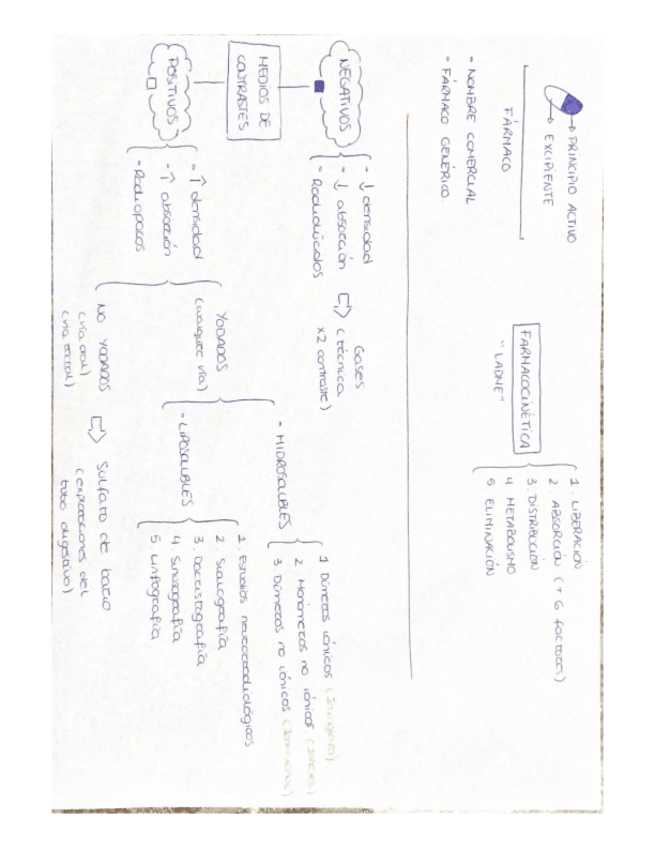 PRINCIPIO ACTIVO
EXCIPIENTE
FÁRMACO
- NOMBRE COMERCIAL
- FÁRMACO GENÉRICO
FARMACOCINÉTICA
"LADME"
1. LIBERACIÓN
2. ABSORCIÓN (+ 6 factores)
3. DISTRIBUCIÓN
4 METABOLISMO
5 ELIMINACIÓN
MEDIOS DE
CONTRASTES
NEGATIVOS
- ↓ densidad
- ↓ absorción
- Radiolúcidos
Gases
(técnica
x2 contraste)
POSITIVOS
- ↑ densidad
- ↑ absorción
- Radiopacos
YODADOS
(cualquier vía)
- HIDROSOLUBLES
1 Dímeros iónicos
2. Monómeros no iónicos
3. Dímeros no iónicos
- LIPOSOLUBLES
1. Estudios neurorradiológicos
2. Sialografía
3. Dacristografía
4. Sinusografía
5. Linfografía
NO YODADOS
(vía oral)
(vía rectal)
Sulfato de bario
(exploraciones del
tubo digestivo)